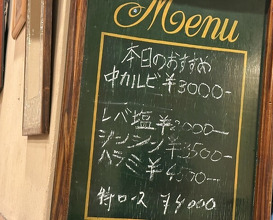 Menu
本日のおすすめ
中カルビ ¥3000-
レバ塩 ¥2000-
シンシン ¥3500-
ハラミ ¥4500-
特ロース ¥4000